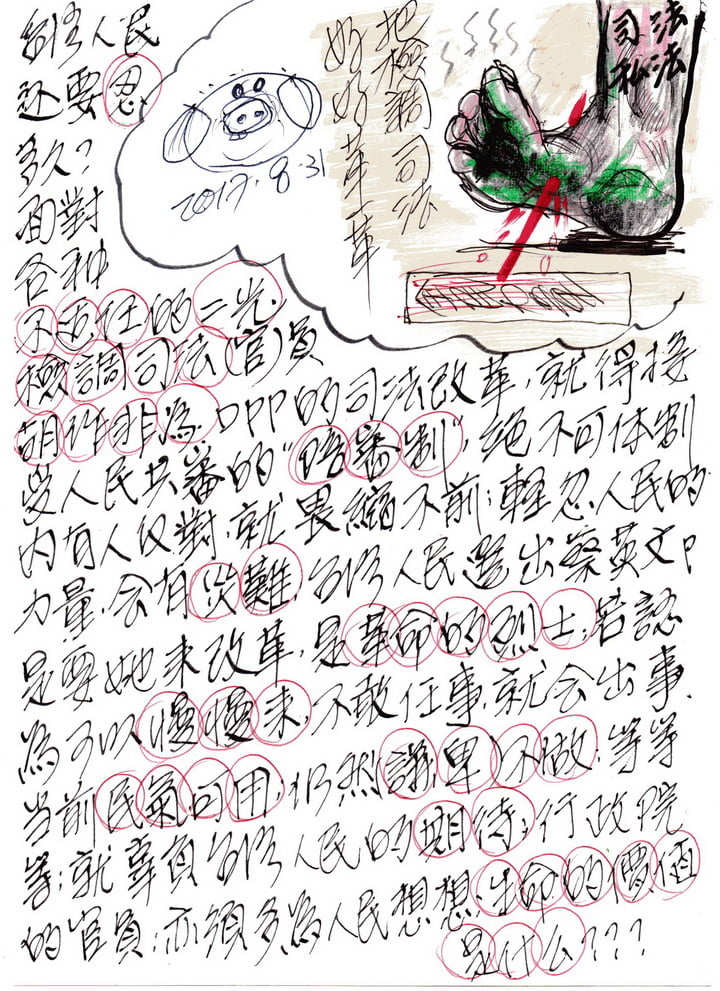 台湾人民
还要忍
多久？
面對
各种
不适任的二光，
檢調司法(官)員
胡作非為，DPP的司法改革，就得接
受人民共審的“陪審制”，絕不可体制
内有人反對，就畏縮不前；輕忽人民的
力量，会有災難，台湾人民選出蔡英文，
是要她来改革，是革命的烈士；若認
為可以慢慢来，不敢任事，就会出事，
当前民氣可用，仍然謙卑不做；等等
等；就辜負台湾人民的期待；行政院
的官員；亦須多為人民想想，生命的價值
是什么？？？
2017.8.31
把檢調司法
好好革革
司法
私法